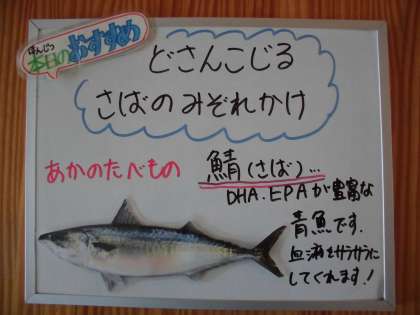 ほんじつ
本日のおすすめ
どさんこじる
さばのみぞれかけ
あかのたべもの
鯖(さば)…
DHA.EPAが豊富な
青魚です.
血液をサラサラに
してくれます!